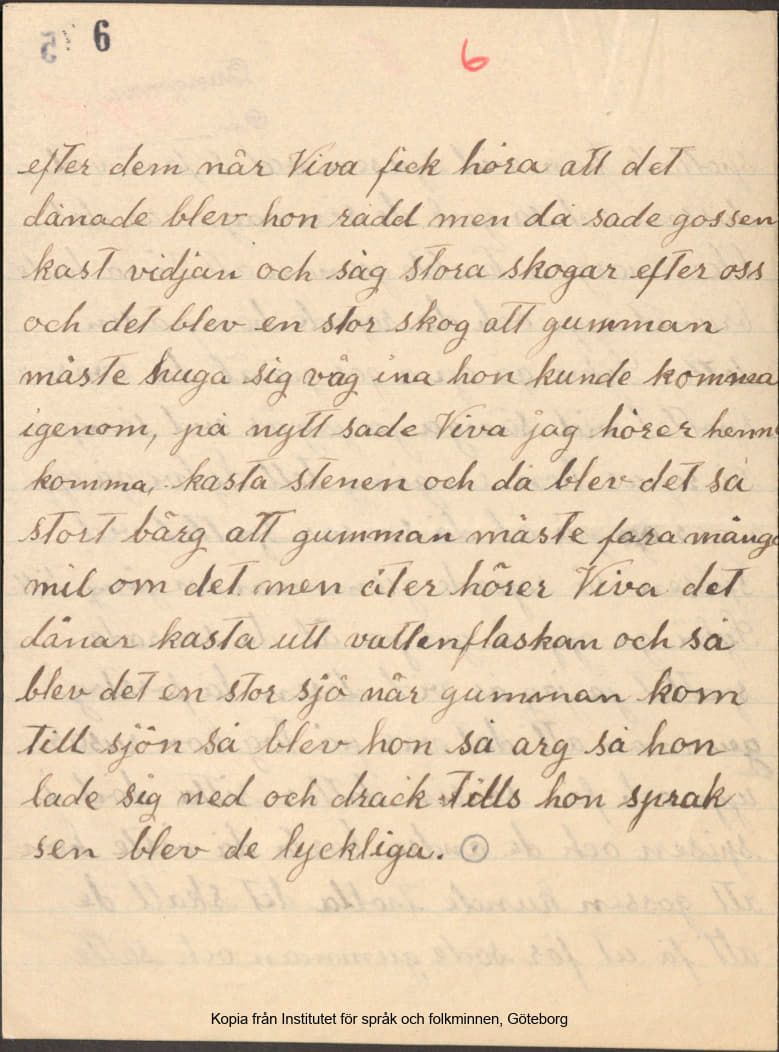 6
6
efter dem når Viva fick höra att det
dånade blev hon rådd men då sade gossen
kast vidjan och såg stora skogar efter oss
och det blev en stor skog att gumman
måste huga sig våg ina hon kunde komma
igenom, på nytt sade Viva jag hörer henne
komma, kasta stenen och då blev det så
stort bärg att gumman måste fara många
mil om det men åter hörer Viva det
dånar kasta utt vattenflaskan och så
blev det en stor sjö når gumman kom
till sjön så blev hon så arg så hon
lade sig ned och drack tills hon sprak
sen blev de lyckliga.
Kopia från Institutet för språk och folkminnen, Göteborg